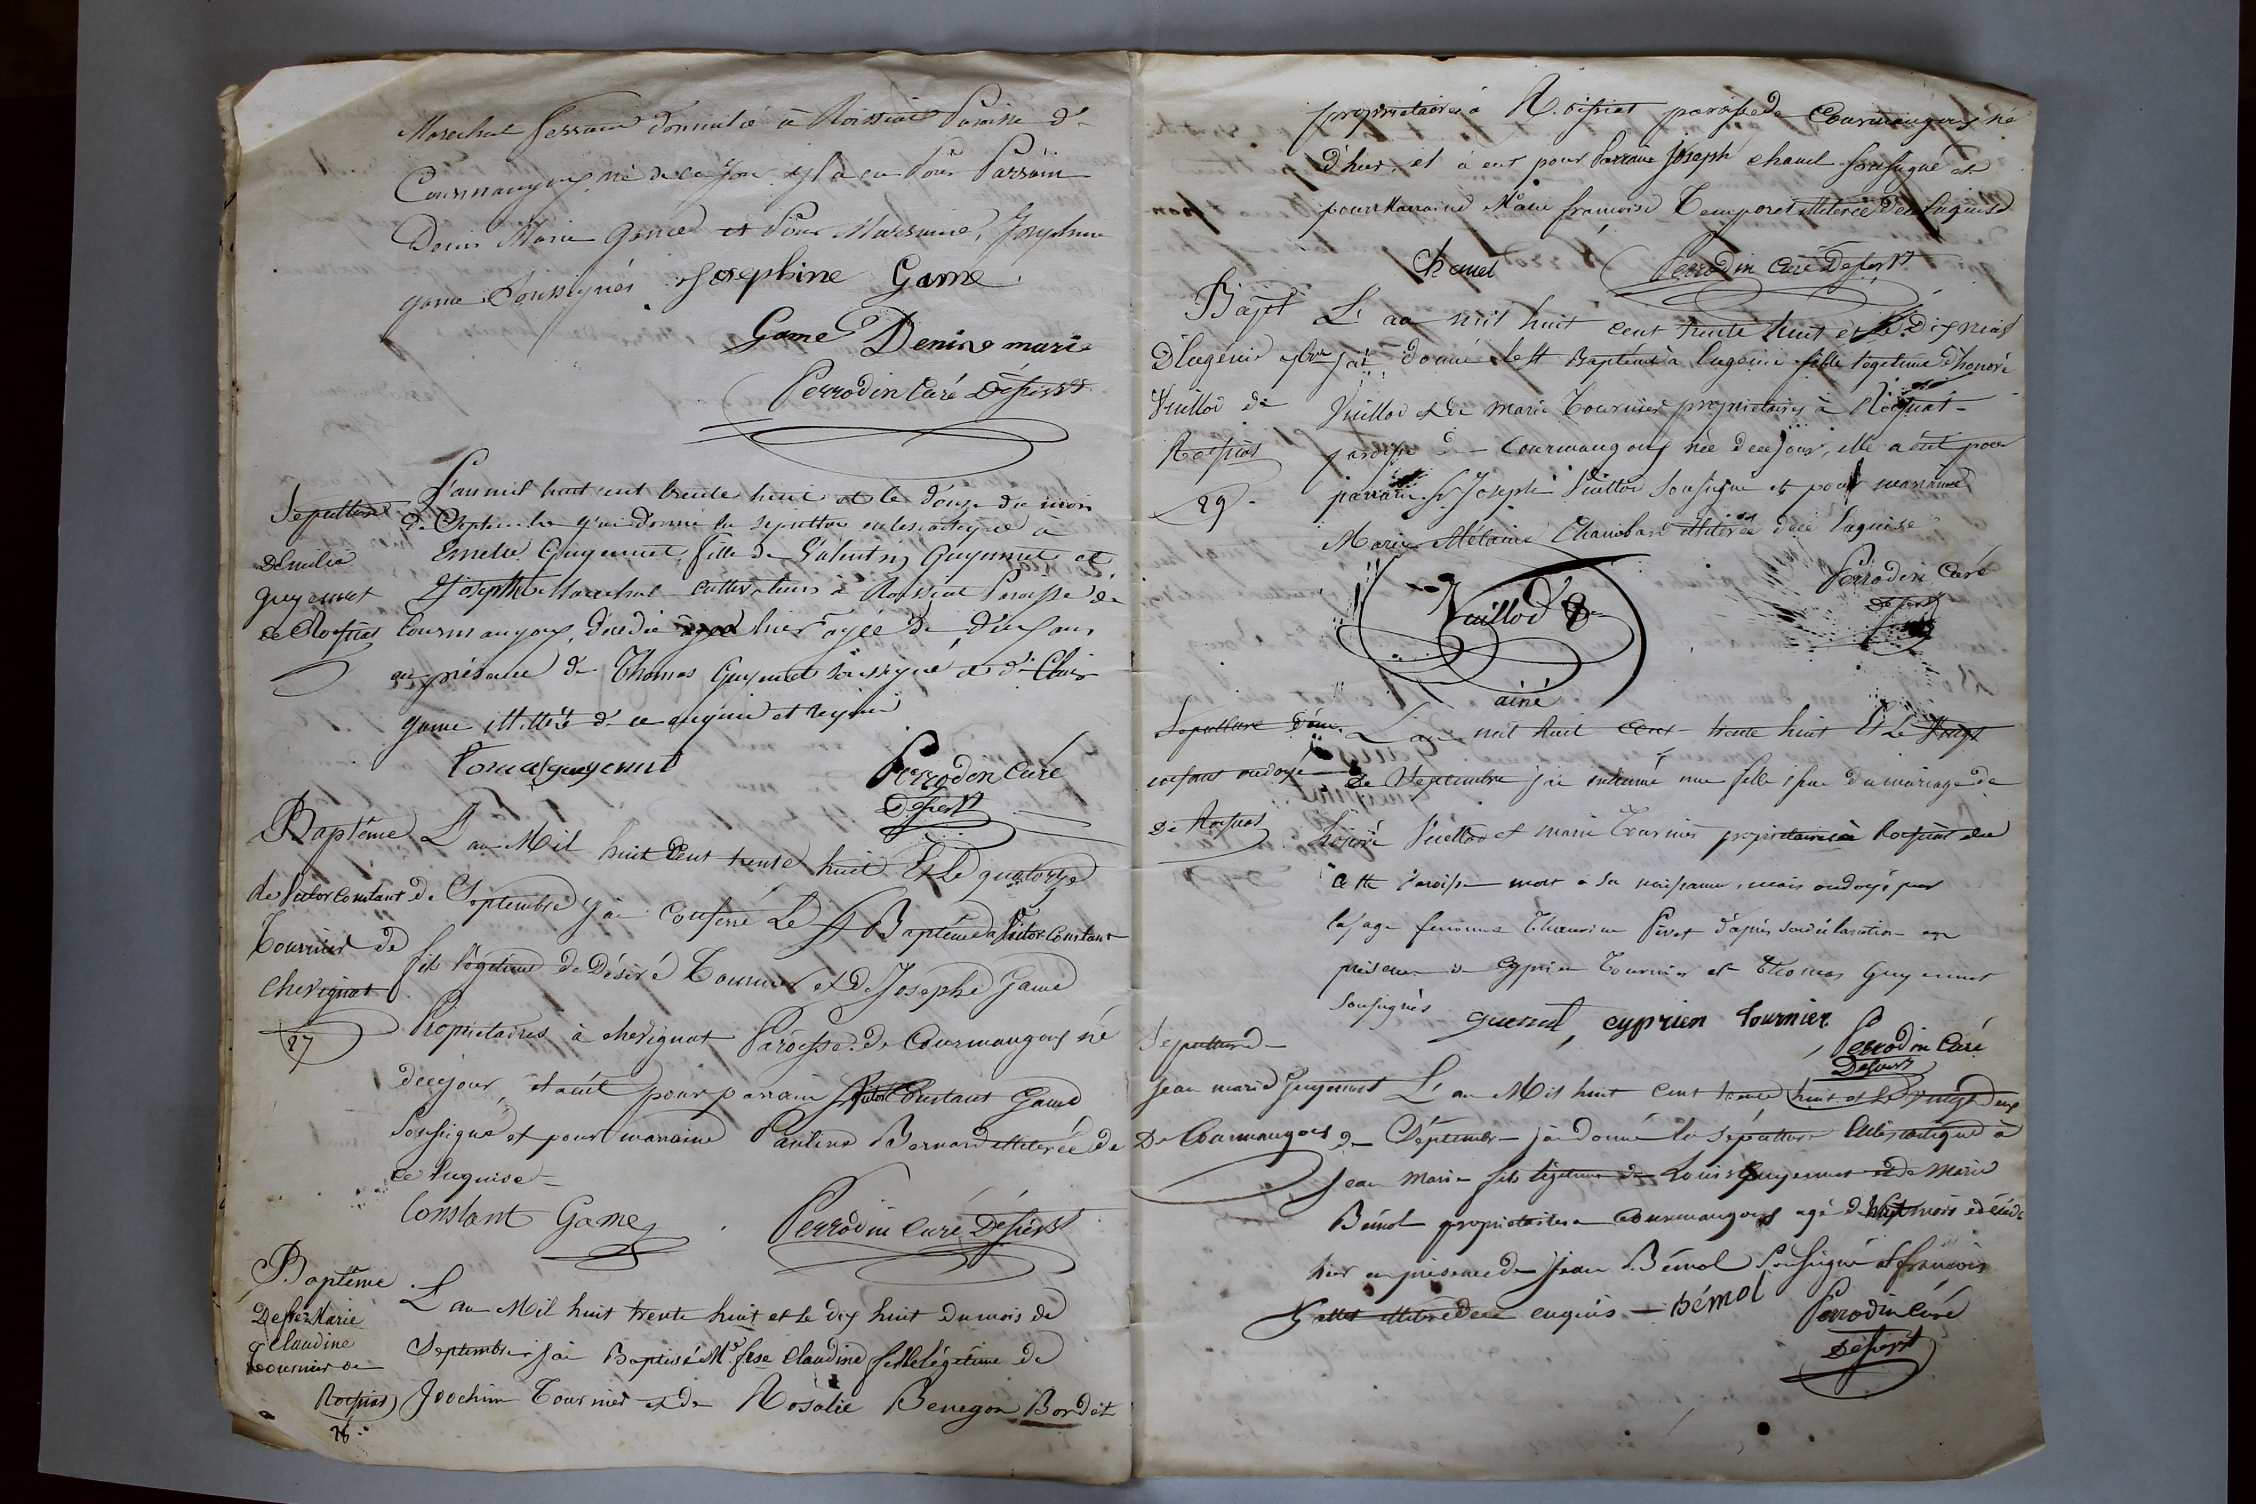 Marechal ferrand domicilié à Roissiat Paroisse de
Courmangoux né de ce jour il a eu Pour Parrain
Denis Marie Game et Pour Marraine, Josephine
game Soussignés Josephine Game
Game Denise marie
Perrodin Curé Desserv
Sepulture
D'Emilie
guyennet
de Roissiat
L'an mil huit cent trente huit et le douze du mois
de Septembre j'ai donné la sepulture eclesiastique à
Emelie Guyennet, fille de Valentin Guyennet et
Josephte Marechal cultivateurs à Roissiat Paroisse de
Courmangoux, décédée hier agée de ans
en présence de Thomas Guyennet soussigné et de Clair
game illitéré de ce enquis et requis
Tomas guyennet Perrodin Curé
Desserv
Baptême
de Victor Constant
Tournier de
Chevignat
27
L'an Mil huit Cent trente huit Et Le quatorze
de Septembre j'ai conferé Le St Baptême a Victor Constant
fils légitime de Désiré Tournier et de Josephe Game
Propriétaires à chevignat Paroisse de Courmangoux né
de ce jour, et a eût pour parrain Victor Constant Game
Soussigné et pour marraine Pauline Bernard illiterée de
ce Enquise
Constant Game Perrodin Curé Desserv
Baptême
Marie
Claudine
Tournier de
Roissiat
28
L'an Mil huit trente huit et le dix huit du mois de
Septembre j'ai Baptisé Me fse Claudine fille légitime de
Joachim Tournier et de Rosalie Benegon Bordet
propriétaires à Roissiat paroisse de Courmangoux né
d'hier, et à eut pour Parrain Joseph chanel soussigné et
pour Marraine Marie francoise Temporet illiterée de ce Enquise
Chanel Perrodin Curé Desserv
Bapt
D'Eugénie
Vuillod de
Roissiat
29
L'an mil huit cent trente huit et le Dix neuf
7bre j'ai donné le St Baptême à Eugénie fille légitime d'honoré
Vuillod et de Marie Tournier propriétaires à Roissiat
paroisse de Courmangoux née de ce jour, elle a eût pour
parrain Sr Joseph Vuillod Soussigné et pour marraine
Marie Mélanie Chambard illiterée de ce Enquise
Vuillod
ainé
Perrodin Curé
Desserv
Sepulture d'un
enfant ondoyé
De Roissiat
L'an mil huit Cent trente huit Et Le Vingt
De Septembre j'ai inhumé une fille issue du mariage de
honoré Vuillod et marie Tournier propriétaires à Roissiat de
cette Paroisse mort à sa naissance, mais ondoyé par
la sage femme Pivet d'après sa déclaration en
présence de Cyprien Tournier et Thomas Guyennet
Soussignés guenet, cyprien tournier
Perrodin Curé
Desserv
Sepulture de
Jean marie Guyennet
De Courmangoux
L'an Mil huit Cent trente huit et le Vingt Deux
de Septembre j'ai donné la sépulture Eclésiastique à
Jean Marie fils légitime de Louis Guyennet et de Marie
Bémol propriétaires a Courmangoux agé de mois décédé
hier en présence de Jean Bémol Soussigné et francois
illitere de ce enquis bémol Perrodin Curé
Desserv